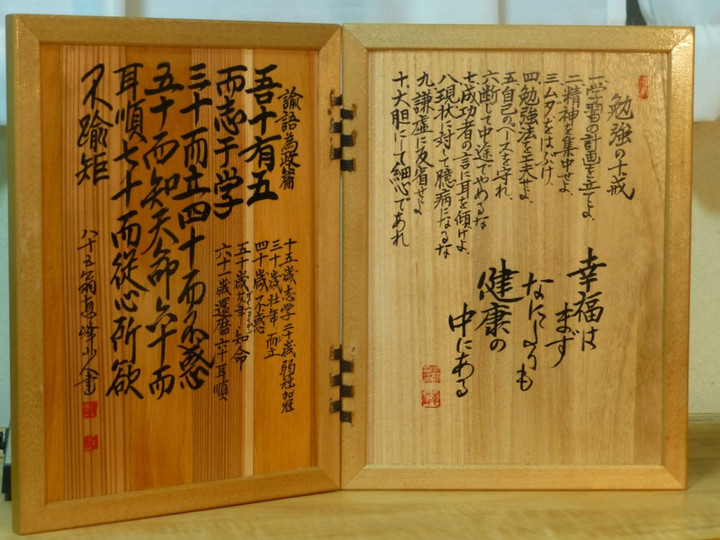 勉強の十戒
一、学習の計画を立てよ、
二、精神を集中せよ、
三、ムダをはぶけ、
四、勉強法を工夫せよ、
五、自己のペースを守れ、
六、断して中途でやめるな
七、成功者の言に耳を傾けよ、
八、現状に対して臆病になるな
九、謙虚に反省せよ
十、大胆にして細心であれ
幸福は
まず
なによりも
健康の
中にある
論語為政篇
吾十有五
而志于学
三十而立四十而不惑
五十而知天命六十而
耳順七十而従心所欲
不踰矩
十五歳志学二十歳弱冠加冠
三十歳壮年、而立
四十歳不惑
五十歳知命
六十一歳還暦六十耳順、